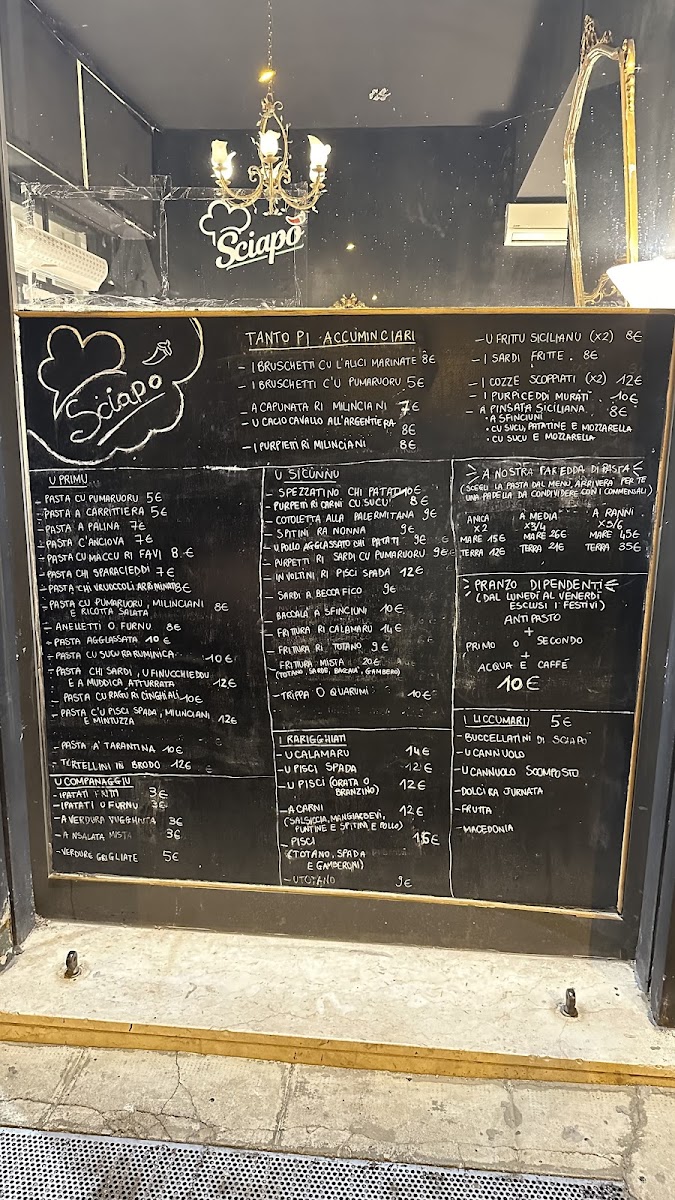 Sciapò
Sciapò
TANTO PI ACCUMINCIARI
- I BRUSCHETTI CU L'ALICI MARINATE 8€
- I BRUSCHETTI C'U PUMARUORU 5€
- A CAPUNATA RI MILINCIANI 7€
- U CACIO CAVALLO ALL'ARGENTIERA 8€
- I PURPIETTI RI MILINCIANI 8€
- U FRITTU SICILIANU (X2) 8€
- I SARDI FRITTE. 8€
- I COZZE SCOPPIATI (X2) 12€
- I PURPICEDDI MURATI 10€
- A PINSATA SICILIANA 8€
• A SFINCIUNI
• CU SUCU, PATATINE E MOZZARELLA
• CU SUCU E MOZZARELLA
U PRIMU
- PASTA CU PUMARUORU 5€
- PASTA A CARRITTIERA 5€
- PASTA A PALINA 7€
- PASTA C'ANCIOVA 7€
- PASTA CU MACCU RI FAVI 8€
- PASTA CHI SPARACIEDDI 7€
- PASTA CHI VRUOCCOLI ARRIMINATI 8€
- PASTA CU PUMARUORU, MILINCIANI
E RICOTTA SALATA 8€
- ANELLETTI O FURNU 8€
- PASTA AGGLASSATA 10€
- PASTA CU SUCU RA RUMINICA 10€
- PASTA CHI SARDI, U FINUCCHIEDDU
E A MUDDICA ATTURRATA 12€
PASTA CU RAGÙ RI CINGHIALI 10€
- PASTA C'U PISCI SPADA, MILINCIANI
E MINTUZZA 12€
- PASTA A' TARANTINA 10€
- TORTELLINI IN BRODO 12€
U COMPANAGGIU
- I PATATI FRITTI 3€
- I PATATI O FURNU 3€
- A VERDURA VUGGHIUTA 3€
- A NSALATA MISTA 3€
- VERDURE GRIGLIATE 5€
U SICUNNU
- SPEZZATINO CHI PATATI 10€
- PURPETTI RI CARNI CU SUCU 8€
- COTOLETTA ALLA PALERMITANA 9€
- SPITINI RA NONNA 9€
- U POLLO AGGLASSATO CHI PATATI 9€
- PURPETTI RI SARDI CU PUMARUORU 9€
- INVOLTINI RI PISCI SPADA 12€
- SARDI A BECCAFICO 9€
- BACCALÀ A SFINCIUNI 10€
- FRITTURA RI CALAMARU 14€
- FRITTURA RI TOTANO 9€
- FRITTURA MISTA 20€
(TOTANO, SARDE, BACCALA', GAMBERO)
- TRIPPA O QUARUMI 10€
I RARIGGHIATI
- U CALAMARU 14€
- U PISCI SPADA 12€
- U PISCI (ORATA O
BRANZINO) 12€
- A CARNI 12€
(SALSICCIA, MANGIAEBEVI,
PUNTINE E SPITINA E POLLO)
- PISCI 15€
(TOTANO, SPADA
E GAMBERONI)
- U TOTANO 9€
A NOSTRA FAREDDA DI PASTA
(SCEGLI LA PASTA DAL MENÙ, ARRIVERÀ PER TE
UNA PADELLA DA CONDIVIDERE CON I COMMENSALI)
A NICA A MEDIA A RANNI
X2 X3/4 X5/6
MARE 15€ MARE 26€ MARE 45€
TERRA 12€ TERRA 21€ TERRA 35€
PRANZO DIPENDENTI
(DAL LUNEDÌ AL VENERDÌ
ESCLUSI I FESTIVI)
ANTIPASTO
+
PRIMO O SECONDO
+
ACQUA E CAFFÈ
10€
I LICCUMARII 5€
- BUCCELLATINI DI SCIAPÒ
- U CANNUOLO
- U CANNUOLO SCOMPOSTO
- DOLCI RA JURNATA
- FRUTTA
- MACEDONIA